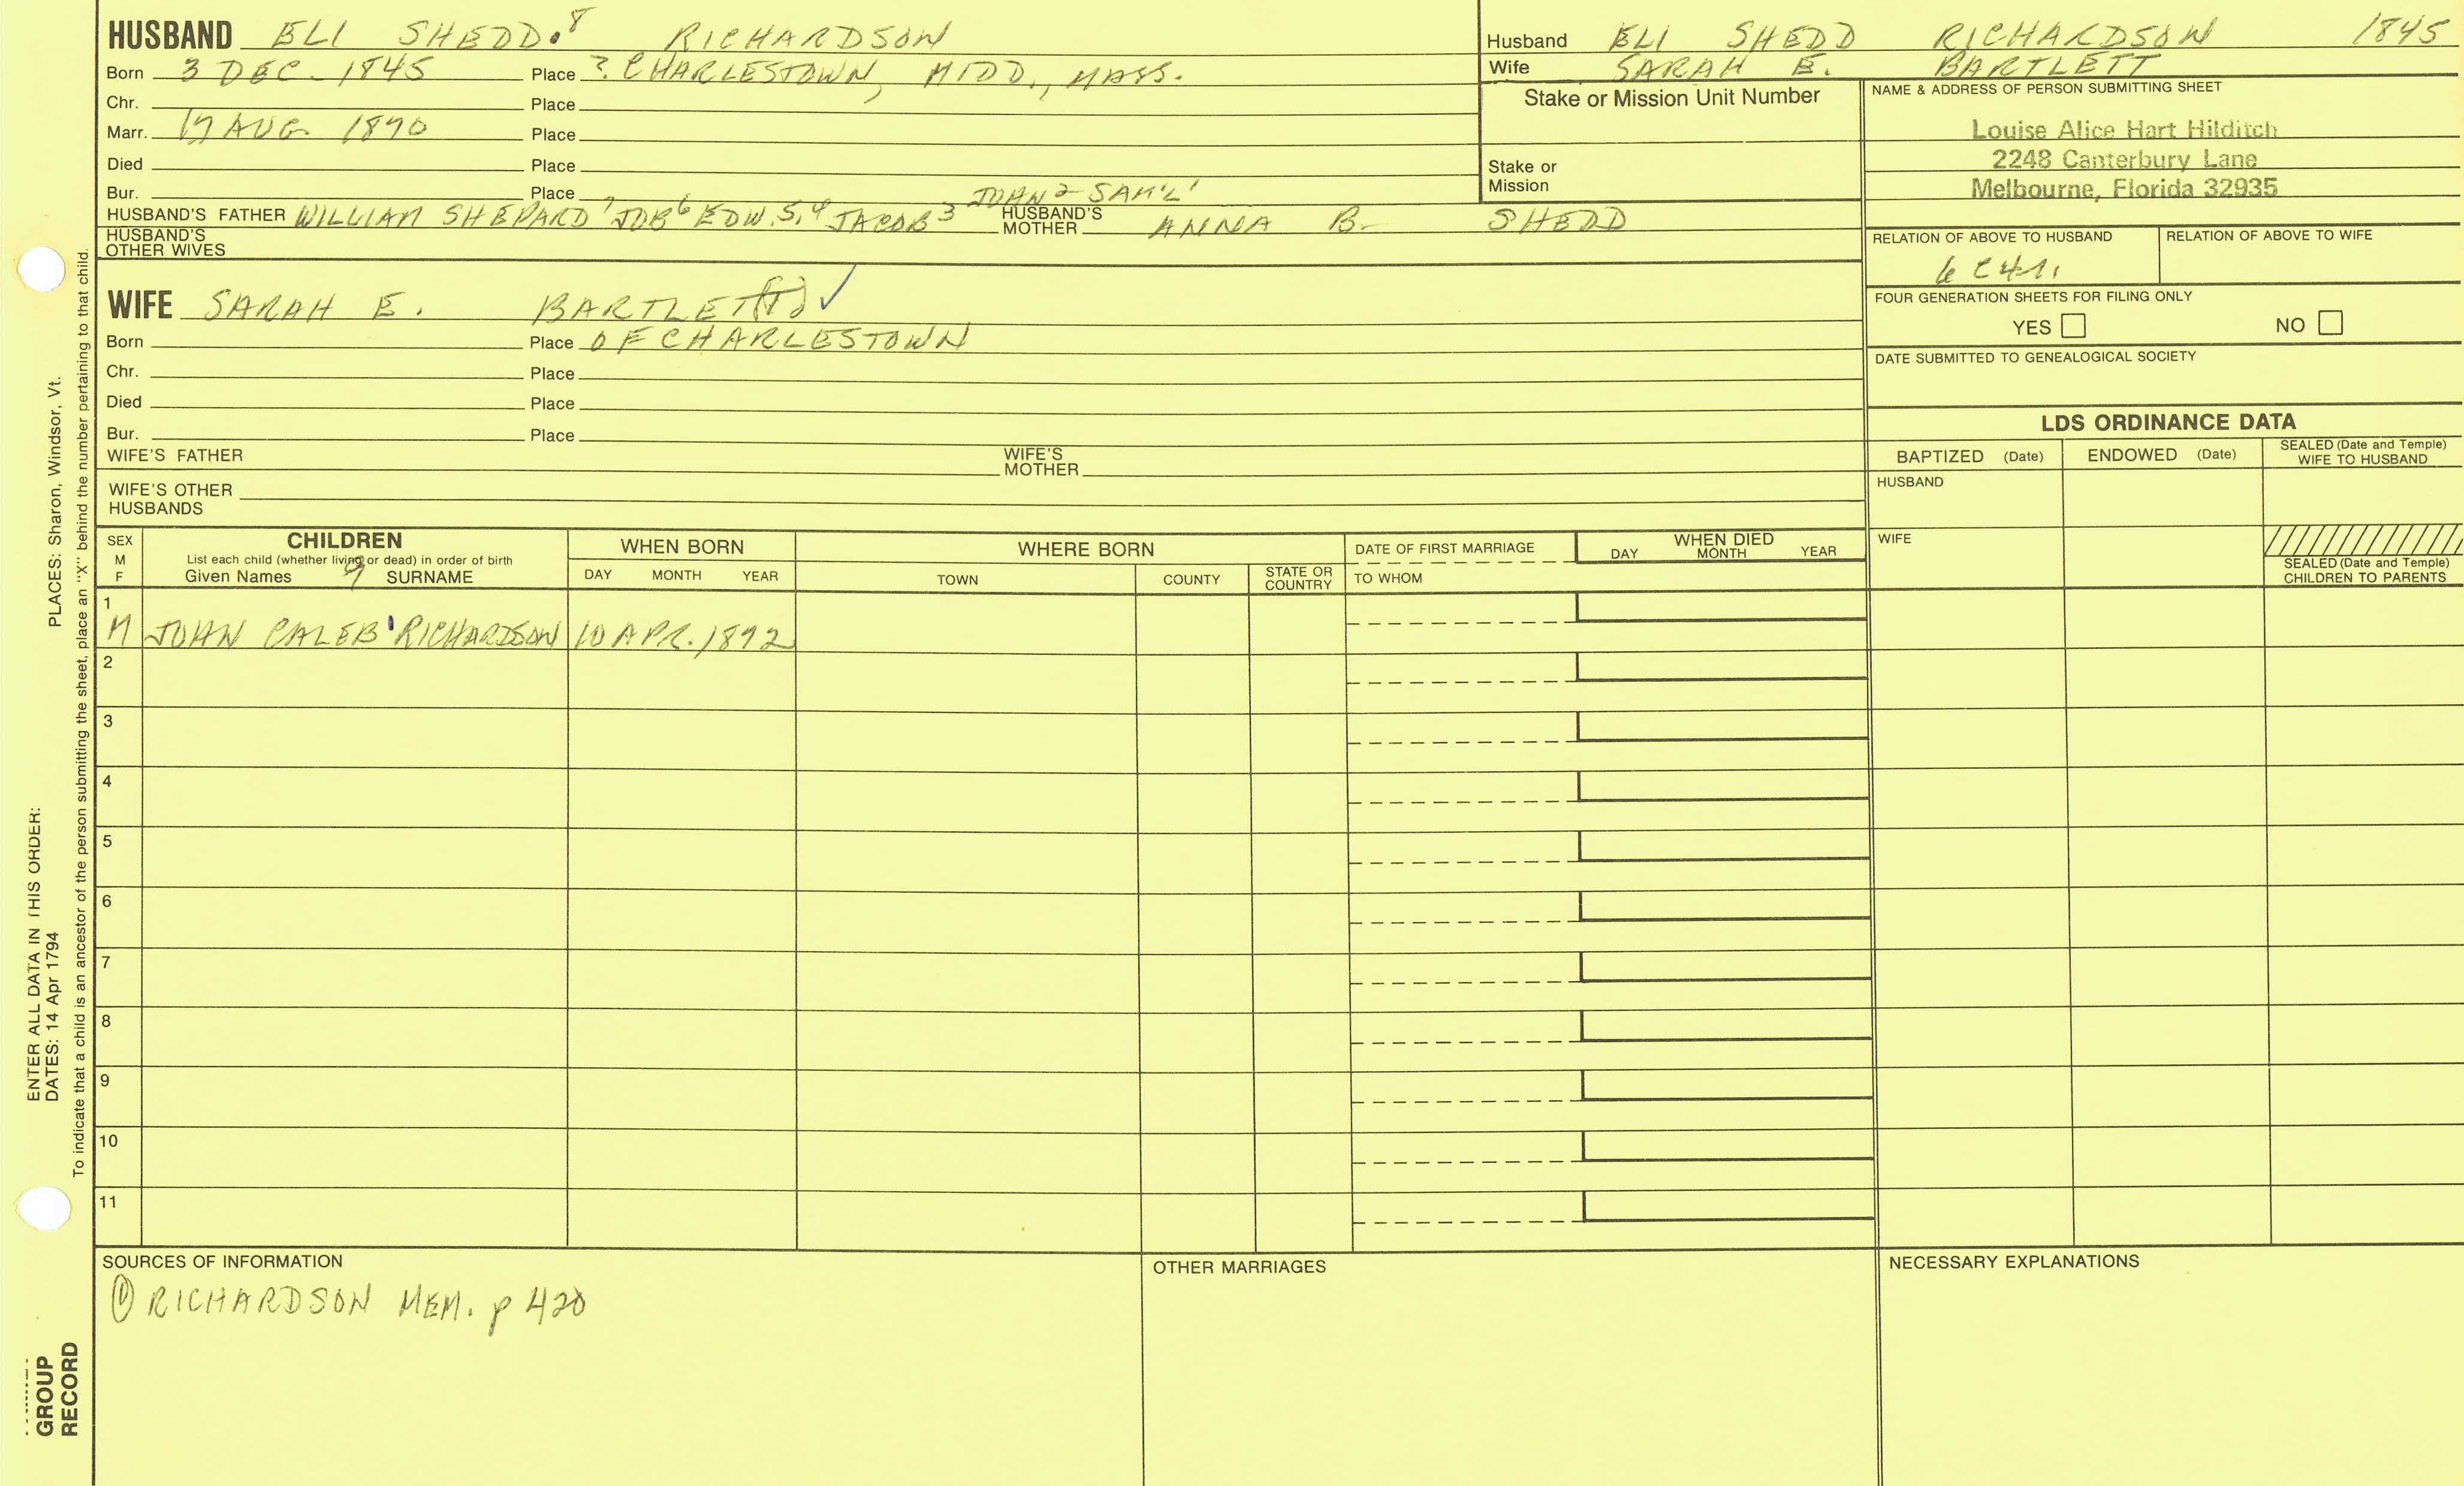 HUSBAND ELI SHEDD.8 RICHARDSON
Born 3 DEC. 1845 Place ? CHARLESTOWN, MIDD., MASS.
Chr. Place
Marr. 17 AUG. 1890 Place
Died Place
Bur. Place
JOHN2 SAM'L1
HUSBAND'S FATHER WILLIAM SHEPARD7 JOB6 EDW.5,4 JACOB3 HUSBAND'S MOTHER ANNA B. SHEDD
HUSBAND'S OTHER WIVES
Husband ELI SHEDD RICHARDSON 1845
Wife SARAH E. BARTLETT
Stake or Mission Unit Number
Stake or Mission
NAME & ADDRESS OF PERSON SUBMITTING SHEET
Louise Alice Hart Hilditch
2248 Canterbury Lane
Melbourne, Florida 32935
RELATION OF ABOVE TO HUSBAND RELATION OF ABOVE TO WIFE
6C4R
FOUR GENERATION SHEETS FOR FILING ONLY
YES NO
DATE SUBMITTED TO GENEALOGICAL SOCIETY
WIFE SARAH E. BARTLET(T) ✓
Born Place OF CHARLESTOWN
Chr. Place
Died Place
Bur. Place
WIFE'S FATHER WIFE'S MOTHER
WIFE'S OTHER HUSBANDS
LDS ORDINANCE DATA
BAPTIZED (Date) ENDOWED (Date) SEALED (Date and Temple) WIFE TO HUSBAND
HUSBAND
WIFE
SEALED (Date and Temple) CHILDREN TO PARENTS
SEX M F
CHILDREN
List each child (whether living or dead) in order of birth
Given Names 9 SURNAME
WHEN BORN
DAY MONTH YEAR
WHERE BORN
TOWN COUNTY STATE OR COUNTRY
DATE OF FIRST MARRIAGE
TO WHOM
WHEN DIED
DAY MONTH YEAR
1
M JOHN CALEB RICHARDSON 10 APR. 1892
2
3
4
5
6
7
8
9
10
11
SOURCES OF INFORMATION
① RICHARDSON MEM. p 420
OTHER MARRIAGES
NECESSARY EXPLANATIONS
ENTER ALL DATA IN THIS ORDER:
DATES: 14 Apr 1794 PLACES: Sharon, Windsor, Vt.
To indicate that a child is an ancestor of the person submitting the sheet, place an "X" behind the number pertaining to that child.
GROUP
RECORD